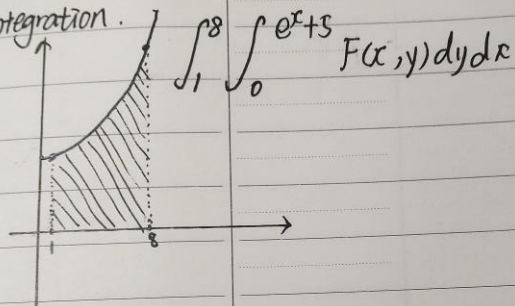 tegration.
∫₁⁸ ∫₀^(eˣ+5) F(x,y)dydx
1
8